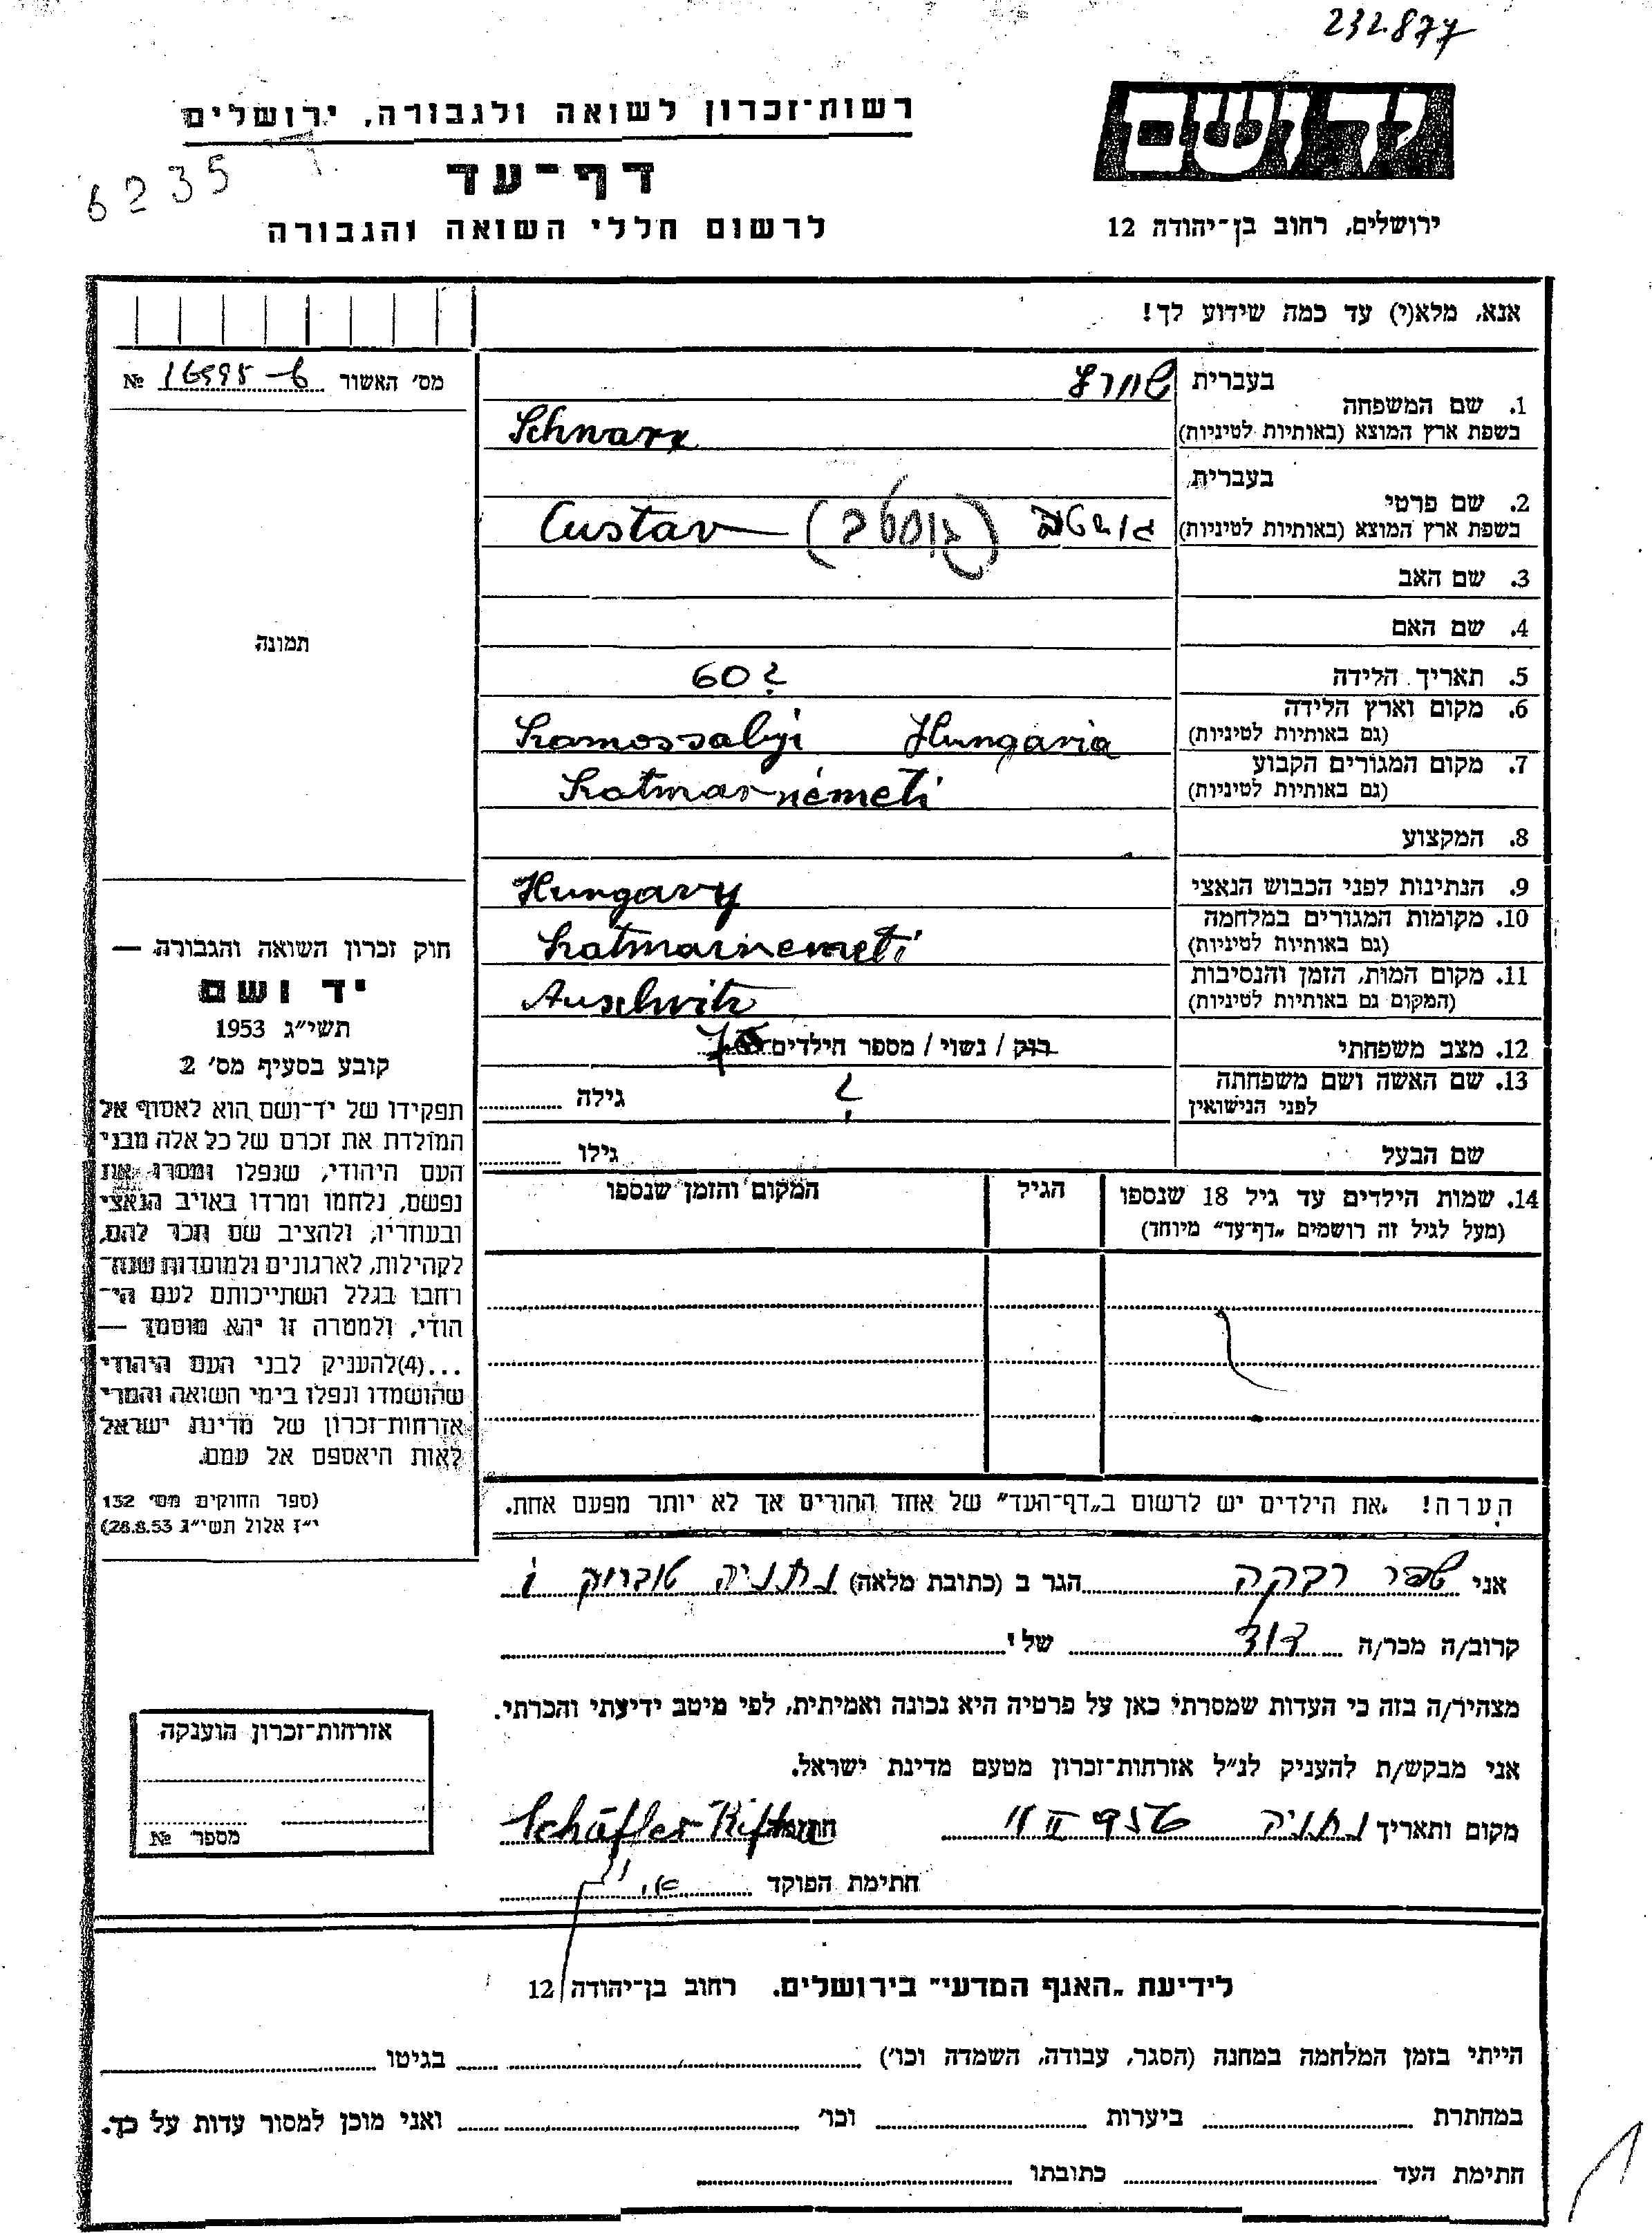 232.877
יד ושם
רשות־זכרון לשואה ולגבורה, ירושלים
6235
דף־עד
ירושלים, רחוב בן־יהודה 12
לרשום חללי השואה והגבורה
אנא, מלא(י) עד כמה שידוע לך!
מס׳ האשור № 16995-6
תמונה
1. שם המשפחה
בעברית שוורץ
בשפת ארץ המוצא (באותיות לטיניות) Schwarz
2. שם פרטי
בעברית
בשפת ארץ המוצא (באותיות לטיניות) גוסטב (גוסטב) Gustav
3. שם האב
4. שם האם
5. תאריך הלידה 60?
6. מקום וארץ הלידה
(גם באותיות לטיניות) Szamossalyi Hungaria
7. מקום המגורים הקבוע
(גם באותיות לטיניות) Szatmárnémeti
8. המקצוע
9. הנתינות לפני הכבוש הנאצי Hungary
10. מקומות המגורים במלחמה
(גם באותיות לטיניות) Szatmárnemeti
11. מקום המות, הזמן והנסיבות
(המקום גם באותיות לטיניות) Auschwitz
12. מצב משפחתי רוק / נשוי / מספר הילדים
13. שם האשה ושם משפחתה
לפני הנישואין ? גילה
שם הבעל גילו
14. שמות הילדים עד גיל 18 שנספו הגיל המקום והזמן שנספו
(מעל לגיל זה רושמים „דף־עד״ מיוחד)
חוק זכרון השואה והגבורה —
יד ושם
תשי״ג 1953
קובע בסעיף מס׳ 2
תפקידו של יד־ושם הוא לאסוף אל
המולדת את זכרם של כל אלה מבני
העם היהודי, שנפלו ומסרו את
נפשם, נלחמו ומרדו באויב הנאצי
ובעוזריו, ולהציב שם וזכר להם,
לקהילות, לארגונים ולמוסדות שנח־
רבו בגלל השתייכותם לעם הי־
הודי, ולמטרה זו יהא מוסמך —
...(4) להעניק לבני העם היהודי
שהושמדו ונפלו בימי השואה והמרי
אזרחות־זכרון של מדינת ישראל
לאות היאספם אל עמם.
(ספר החוקים מס׳ 132
י״ז אלול תשי״ג 28.8.53)
הערה! את הילדים יש לרשום ב„דף־העד״ של אחד ההורים אך לא יותר מפעם אחת.
אני שפר רבקה הגר ב (כתובת מלאה) נתניה
קרוב/ה מכר/ה דוד של י
מצהיר/ה בזה כי העדות שמסרתי כאן על פרטיה היא נכונה ואמיתית, לפי מיטב ידיעתי והכרתי.
אני מבקש/ת להעניק לנ״ל אזרחות־זכרון מטעם מדינת ישראל.
מקום ותאריך נתניה חתימה Schäffer Rifka
חתימת הפוקד
אזרחות־זכרון הוענקה
מספר №
לידיעת „האגף המדעי״ בירושלים. רחוב בן־יהודה 12
הייתי בזמן המלחמה במחנה (הסגר, עבודה, השמדה וכו׳) בגיטו
במחתרת ביערות וכו׳ ואני מוכן למסור עדות על כך.
חתימת העד כתובתו